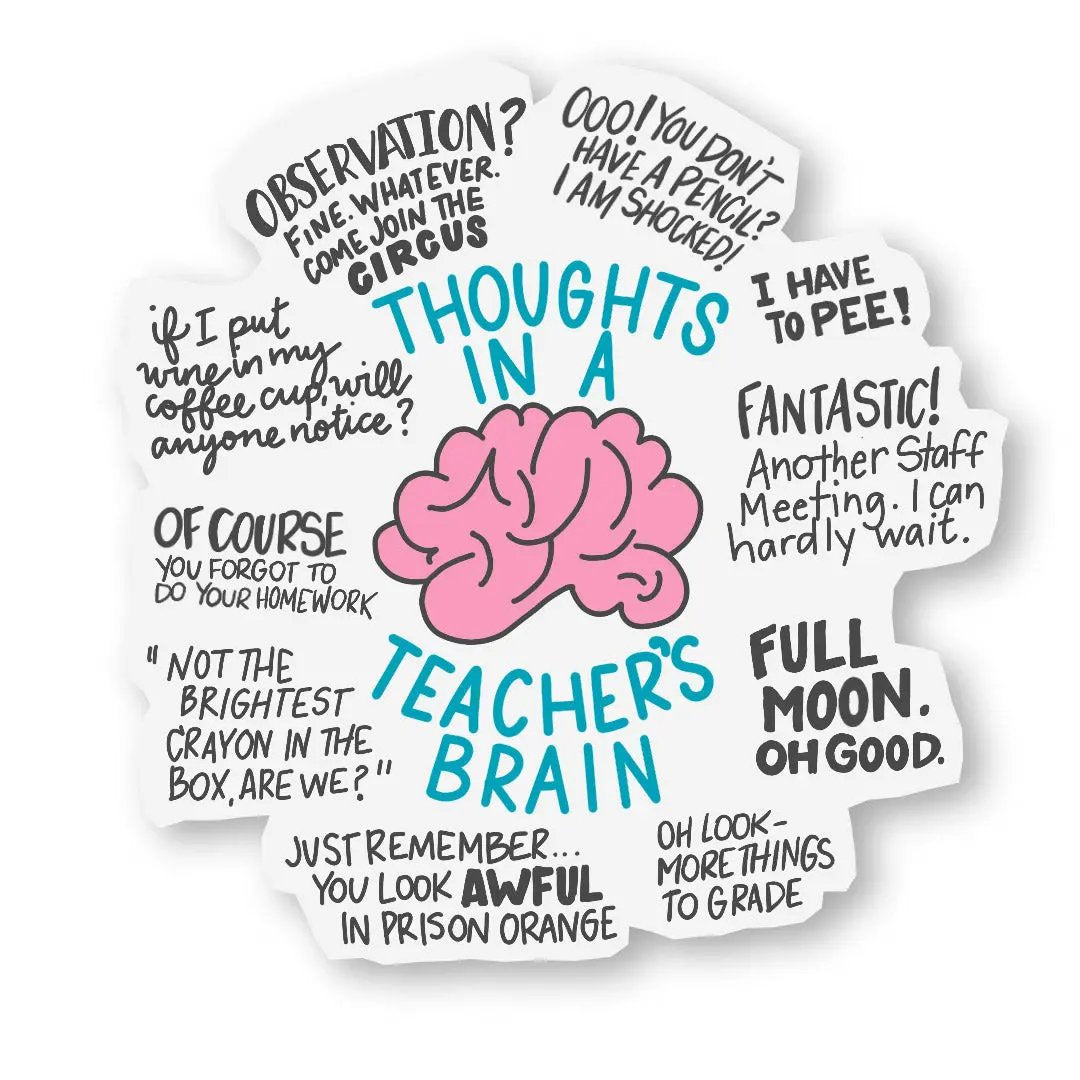 OBSERVATION?
FINE. WHATEVER.
COME JOIN THE
CIRCUS
OOO! YOU DON'T
HAVE A PENCIL?
I AM SHOCKED!
THOUGHTS
IN A
I HAVE
TO PEE!
if I put
wine in my
coffee cup, will
anyone notice?
FANTASTIC!
Another Staff
Meeting. I can
hardly wait.
OF COURSE
YOU FORGOT TO
DO YOUR HOMEWORK
TEACHER'S
BRAIN
FULL
MOON.
OH GOOD.
"NOT THE
BRIGHTEST
CRAYON IN THE
BOX, ARE WE?"
JUST REMEMBER...
YOU LOOK AWFUL
IN PRISON ORANGE
OH LOOK-
MORE THINGS
TO GRADE